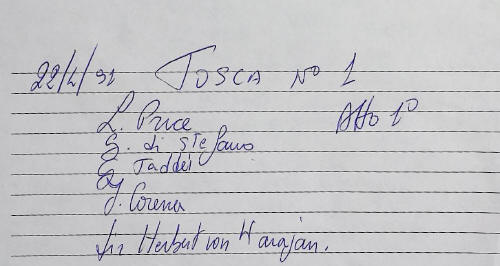 22/4/91 TOSCA No 1
L. Price Atto 1°
G. di Stefano
G. Taddei
F. Corena
Dir Herbert von Karajan.